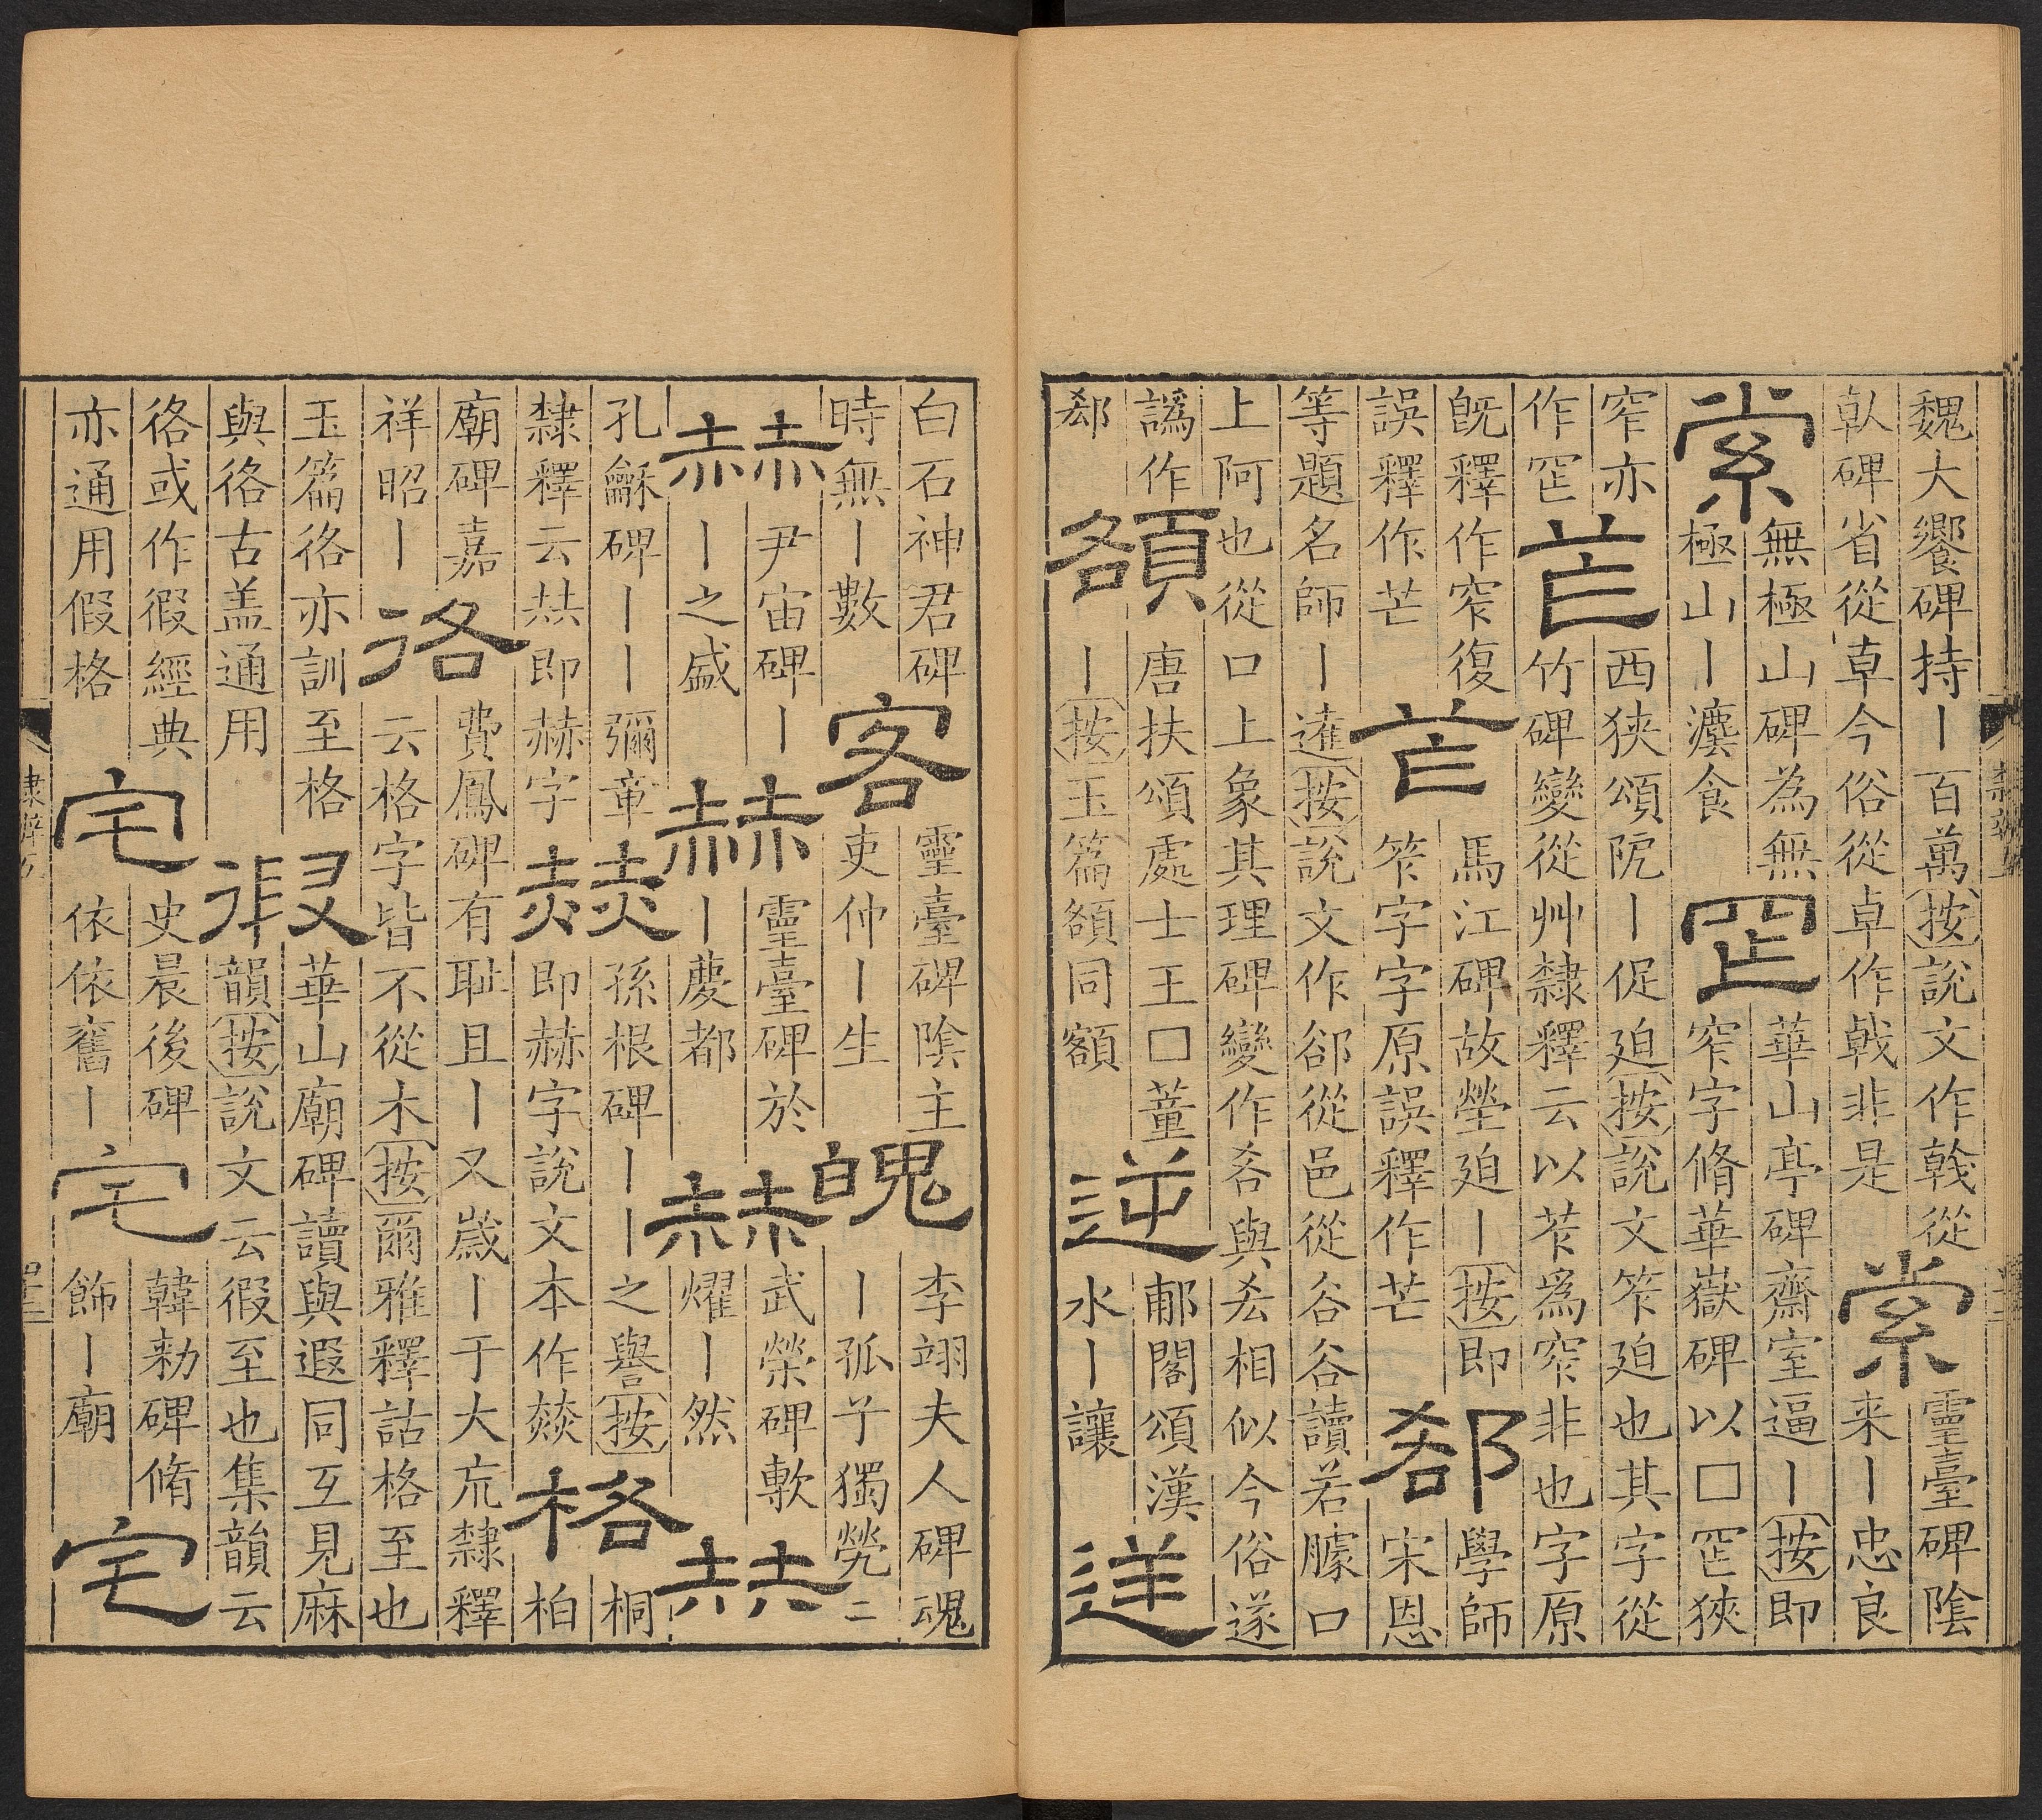 魏大饗碑持丨百萬按說文作𢧢從
倝碑省從卓今俗從卓作戟非是
索
靈臺碑陰
来丨忠良
索
無極山碑為無
極山丨灙食
笮
華山亭碑齋室逼丨按即
窄字脩華嶽碑以□笮狹
窄亦
作笮
苲
西狹頌阸丨促廹按說文笮廹也其字從
竹碑變從艸隸釋云以苲爲窄非也字原
旣釋作窄復
誤釋作芒
苲
馬江碑故塋廹丨按即
笮字字原誤釋作芒
郤
學師
宋恩
等題名師丨按說文作郤從邑從谷谷讀若臄口
上阿也從口上象其理碑變作㕁與相似今俗遂
譌作
郄
頟
唐扶頌處士王□董
丨按玉篇頟同額
逆
郙閣頌漢
水丨讓
逆
白石神君碑
時無丨數
客
靈臺碑陰主
吏仲丨生
魄
李翊夫人碑魂
丨孤孑獨煢二
赫
尹宙碑丨
丨之盛
赫
靈臺碑於
丨慶都
赫
武榮碑㪇
燿丨然
赫
孔龢碑丨丨彌章
隸釋云即赫字
赫
孫根碑丨丨之譽按
即赫字說文本作焱
格
桐
柏
廟碑嘉
祥昭丨
佫
費鳳碑有耻且丨又歲丨于大亢隸釋
云格字皆不從木按爾雅釋詁格至也
玉篇佫亦訓至格
與佫古盖通用
徦
華山廟碑讀與遐同互見麻
韻按說文云徦至也集韻云
佫或作徦經典
亦通用假格
宅
史晨後碑
依依舊丨
宅
韓勑碑脩
飾丨廟
宅